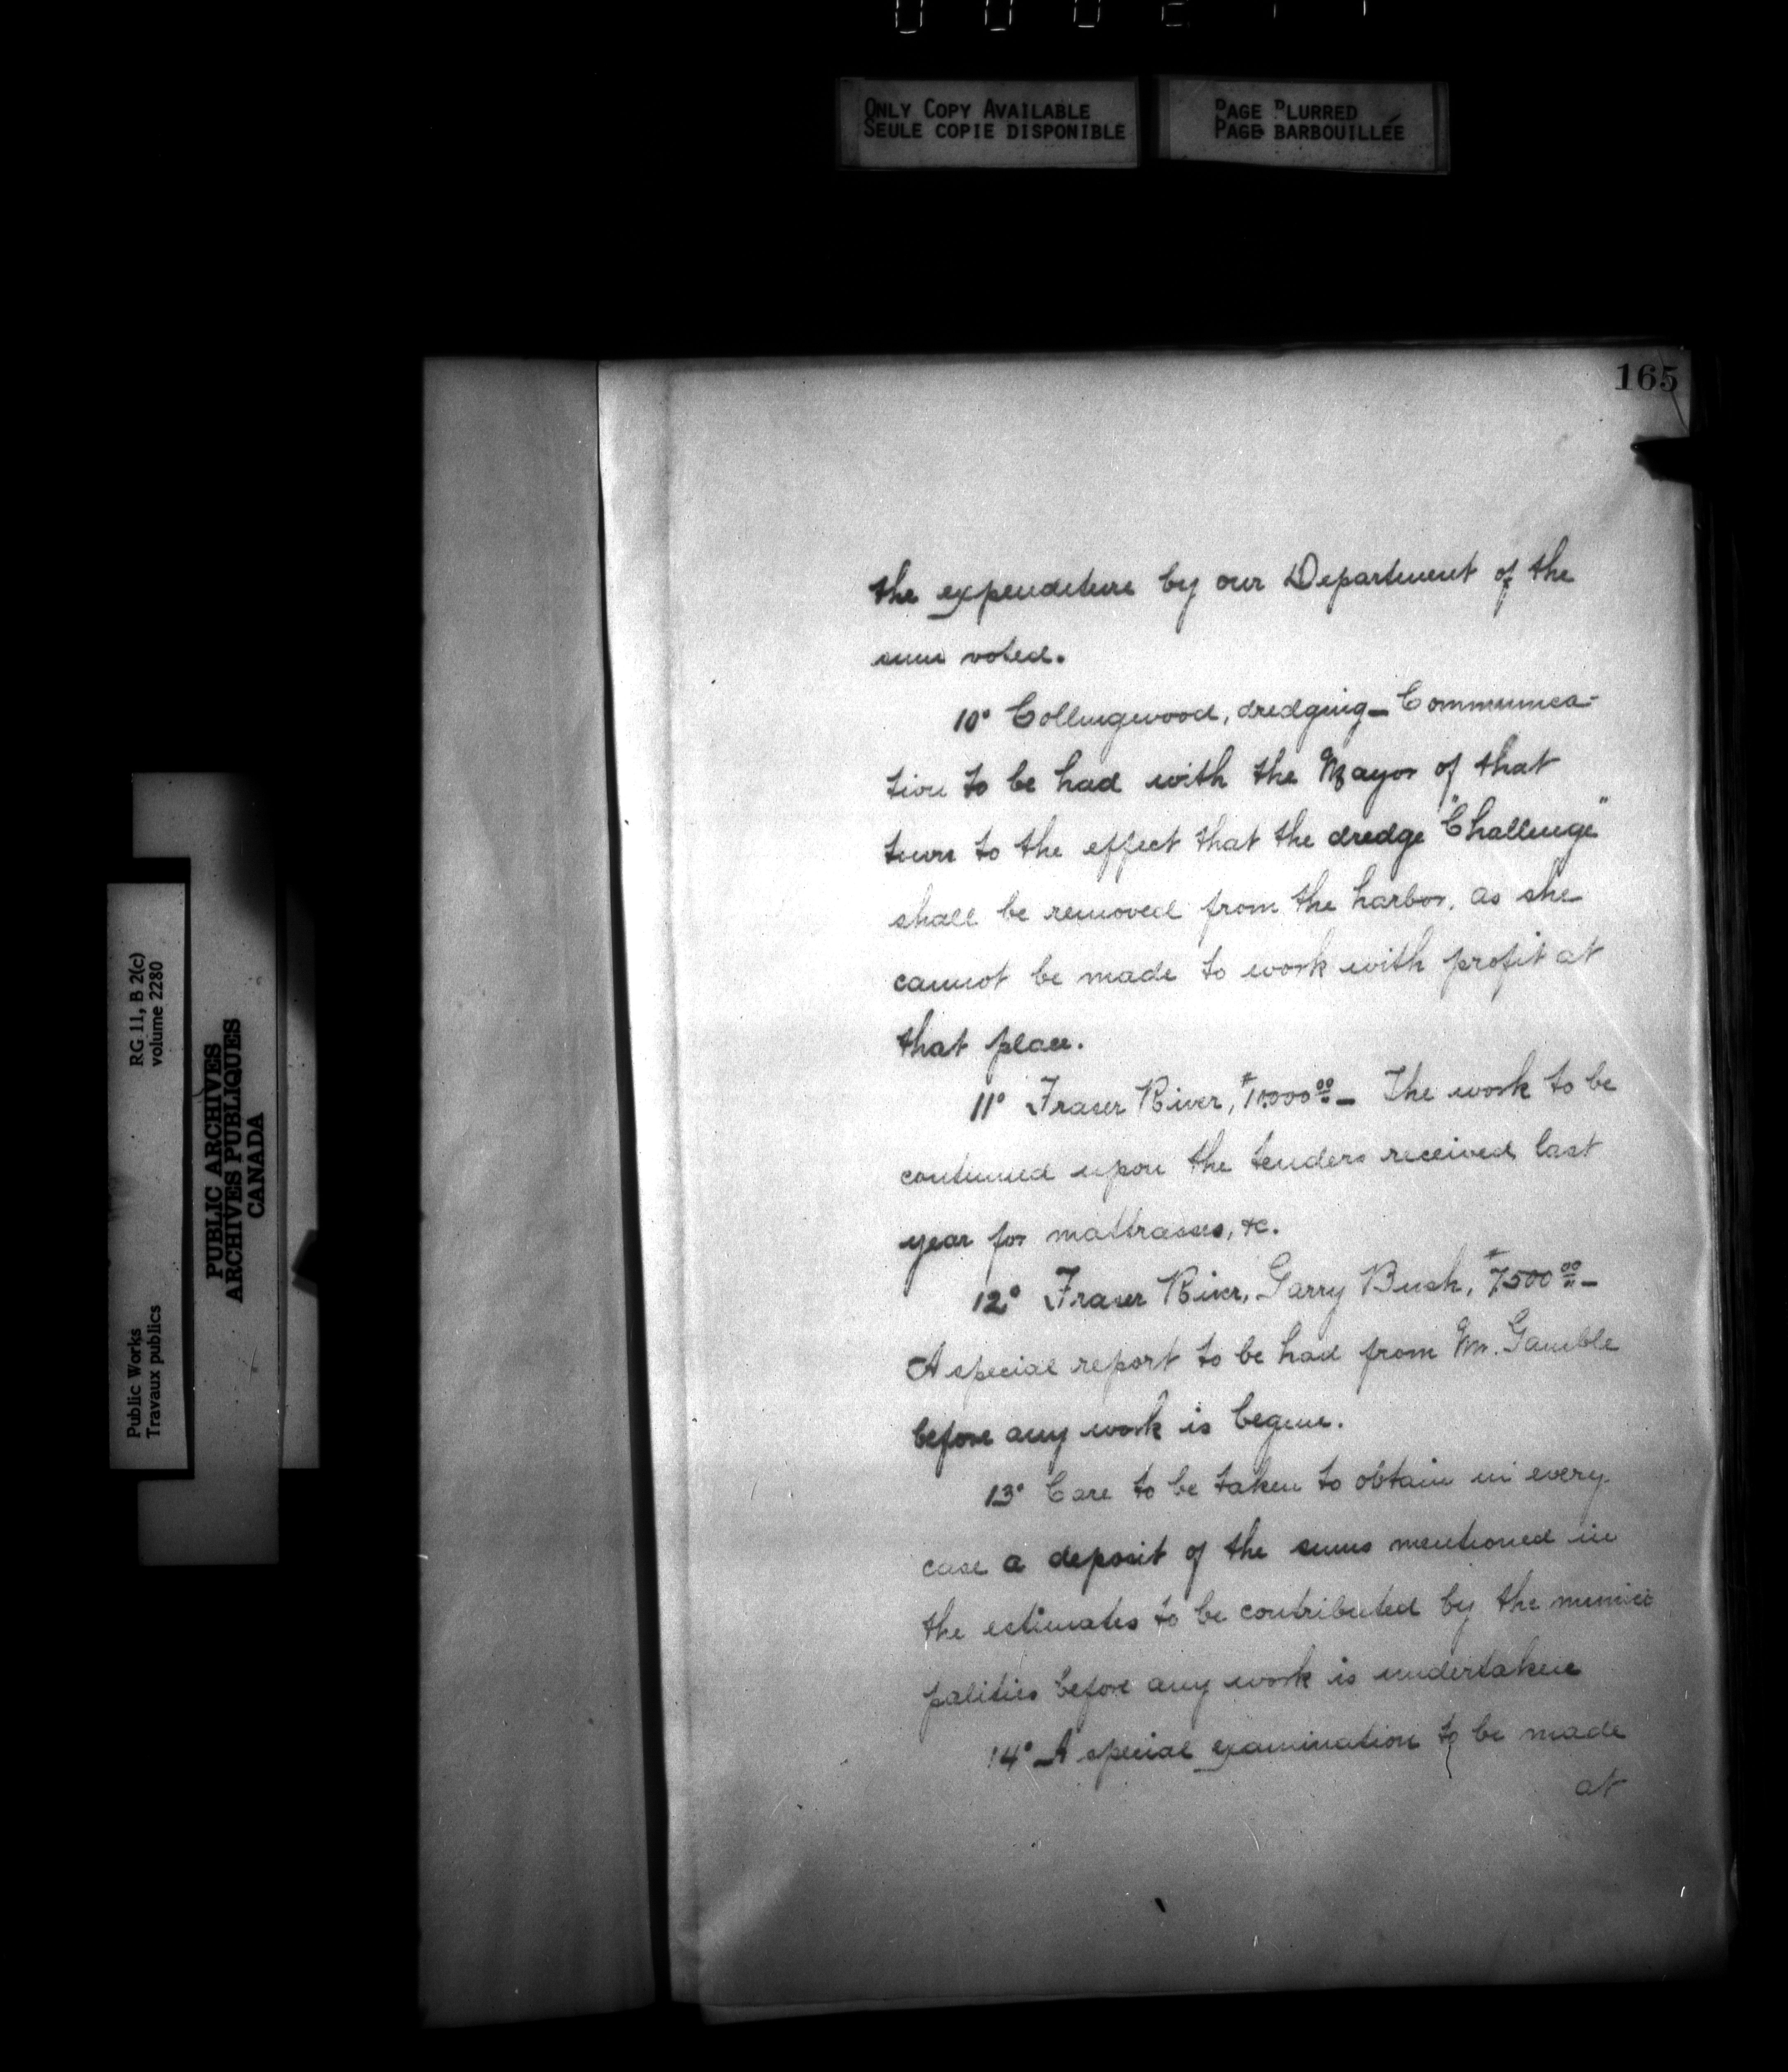 ONLY COPY AVAILABLE
SEULE COPIE DISPONIBLE
PAGE BLURRED
PAGE BARBOUILLÉE
165
the expenditure by our Department of the
sum voted.
10° Collingwood, dredging_ Communica-
tion to be had with the Mayor of that
town to the effect that the dredge "Challenge"
shall be removed from the harbor, as she
cannot be made to work with profit at
that place.
11° Fraser River, $10000 00 _ The work to be
continued upon the tenders received last
year for mattrasses, &c.
12° Fraser River, Garry Bush, $7500 00 _
A special report to be had from Mr. Gamble
before any work is begun.
13° Care to be taken to obtain in every
case a deposit of the sums mentioned in
the estimates to be contributed by the munici
palities before any work is undertaken
14° A special examination to be made
at
RG 11, B 2(c)
volume 2280
Public Works
Travaux publics
PUBLIC ARCHIVES
ARCHIVES PUBLIQUES
CANADA